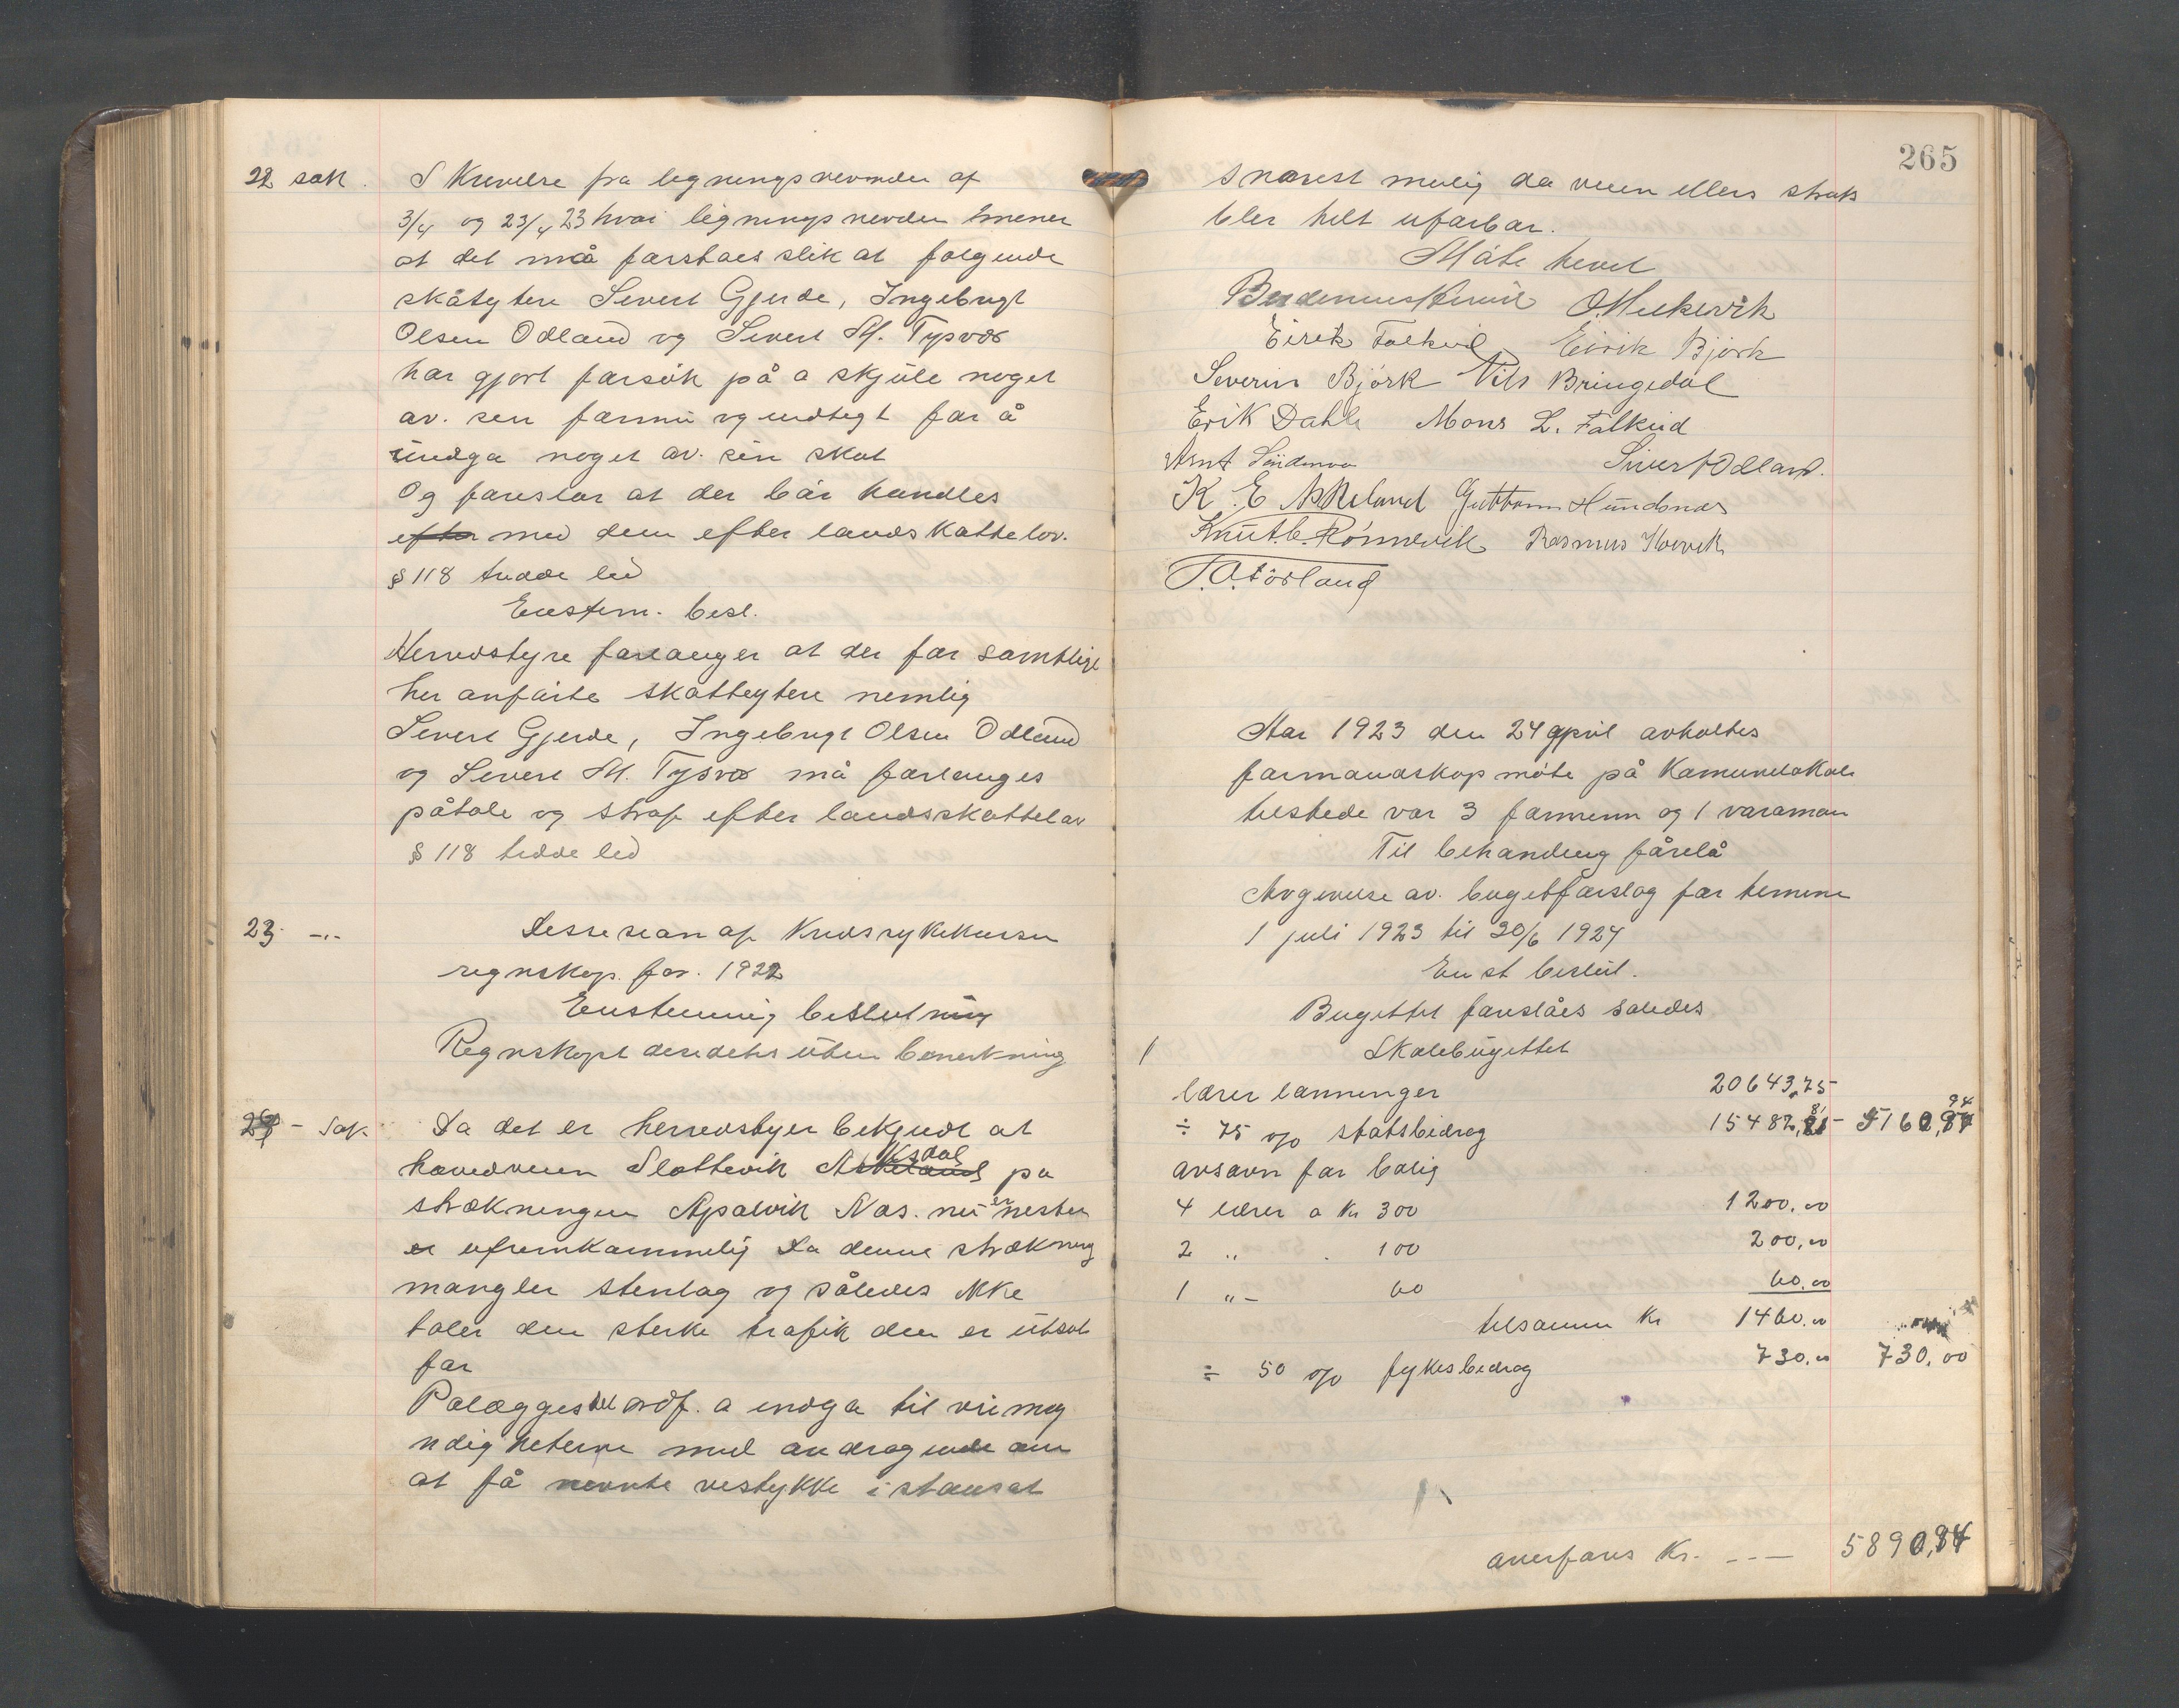 22 sak. Skrivelse fra legningsnevnden af
3/4 og 23/4 23 hvor ligningsnevden mener
at det må forstaes slik at følgende
skåtytere Sivert Gjerde, Ingebrigt
Olsen Odland og Sivert M. Tysvær
har gjort forsøk på a skjule noget
av. sen formu og indtegt for å
undga noget av. sin skat
Og foreslar at der bør handles
efter med dem efter landskattelov.
§ 118 tredde led
Enstem. besl.
Herredstyre forlanger at der for samtlige
her anførte skatteytere nemlig
Sivert Gjerde, Ingebrigt Olsen Odland
og Sivert M. Tysvær må forlanges
påtale og straf efter landsskattelov
§ 118 tredde led
23 -"- Dessesion af Kredssykekassen
regnskap. for. 1922
Enstemmig beslutning
Regnskapet desideres uten bemerkning
24 - Sak Da det er herredstyret bekjendt at
hovedveien Slottevik Askeland Aksdal pa
strækningen Apalvik Nas. nu er nesten
er ufremkommelig Da denne strækning
mangler stenlag og således ikke
toler den sterke trafik den er utsat
for
Palægges det ordf. a indga til veimyn
ndigheterne med andragende om
at få nevnte vestykke i stansat
265
snarest mulig da veien ellers straks
bler helt ufarbar.
Møte hevet
O. Mekevik
Eirik Falkeid Eirik Bjørk
Severin Bjørk Nils Bringedal
Erik Dahle Mons L. Falkeid
Arnt Sündenaa Sivert Odland.
K. E. Askeland Guttorm Hundsnes
Knut C. Rønnevik Rasmus Hervik
T. O. Førland
Aar 1923 den 24 april avholtes
formandskap møte på Kamunelokale
tilstede var 3 formenn og 1 varaman
Til behandling fårelå
Avgivelse av. bugetforslag for termine
1 juli 1923 til 30/6 1924
Enst beslut.
Bugettet foreslåes saledes
1 Skolebugettet
lærer lønninger 20643,75
÷ 75 o/o statsbidrag 15482,81 - 5160,94
avsavn for bolig
4 lærer a kr 300 1200,00
2 " . 100 200,00
1 "- 60 60,00
tilsamm kr 1460,00
÷ 50 o/o fylkesbidrag 730,00 730,00
overføres Kr. - - — 5890,94